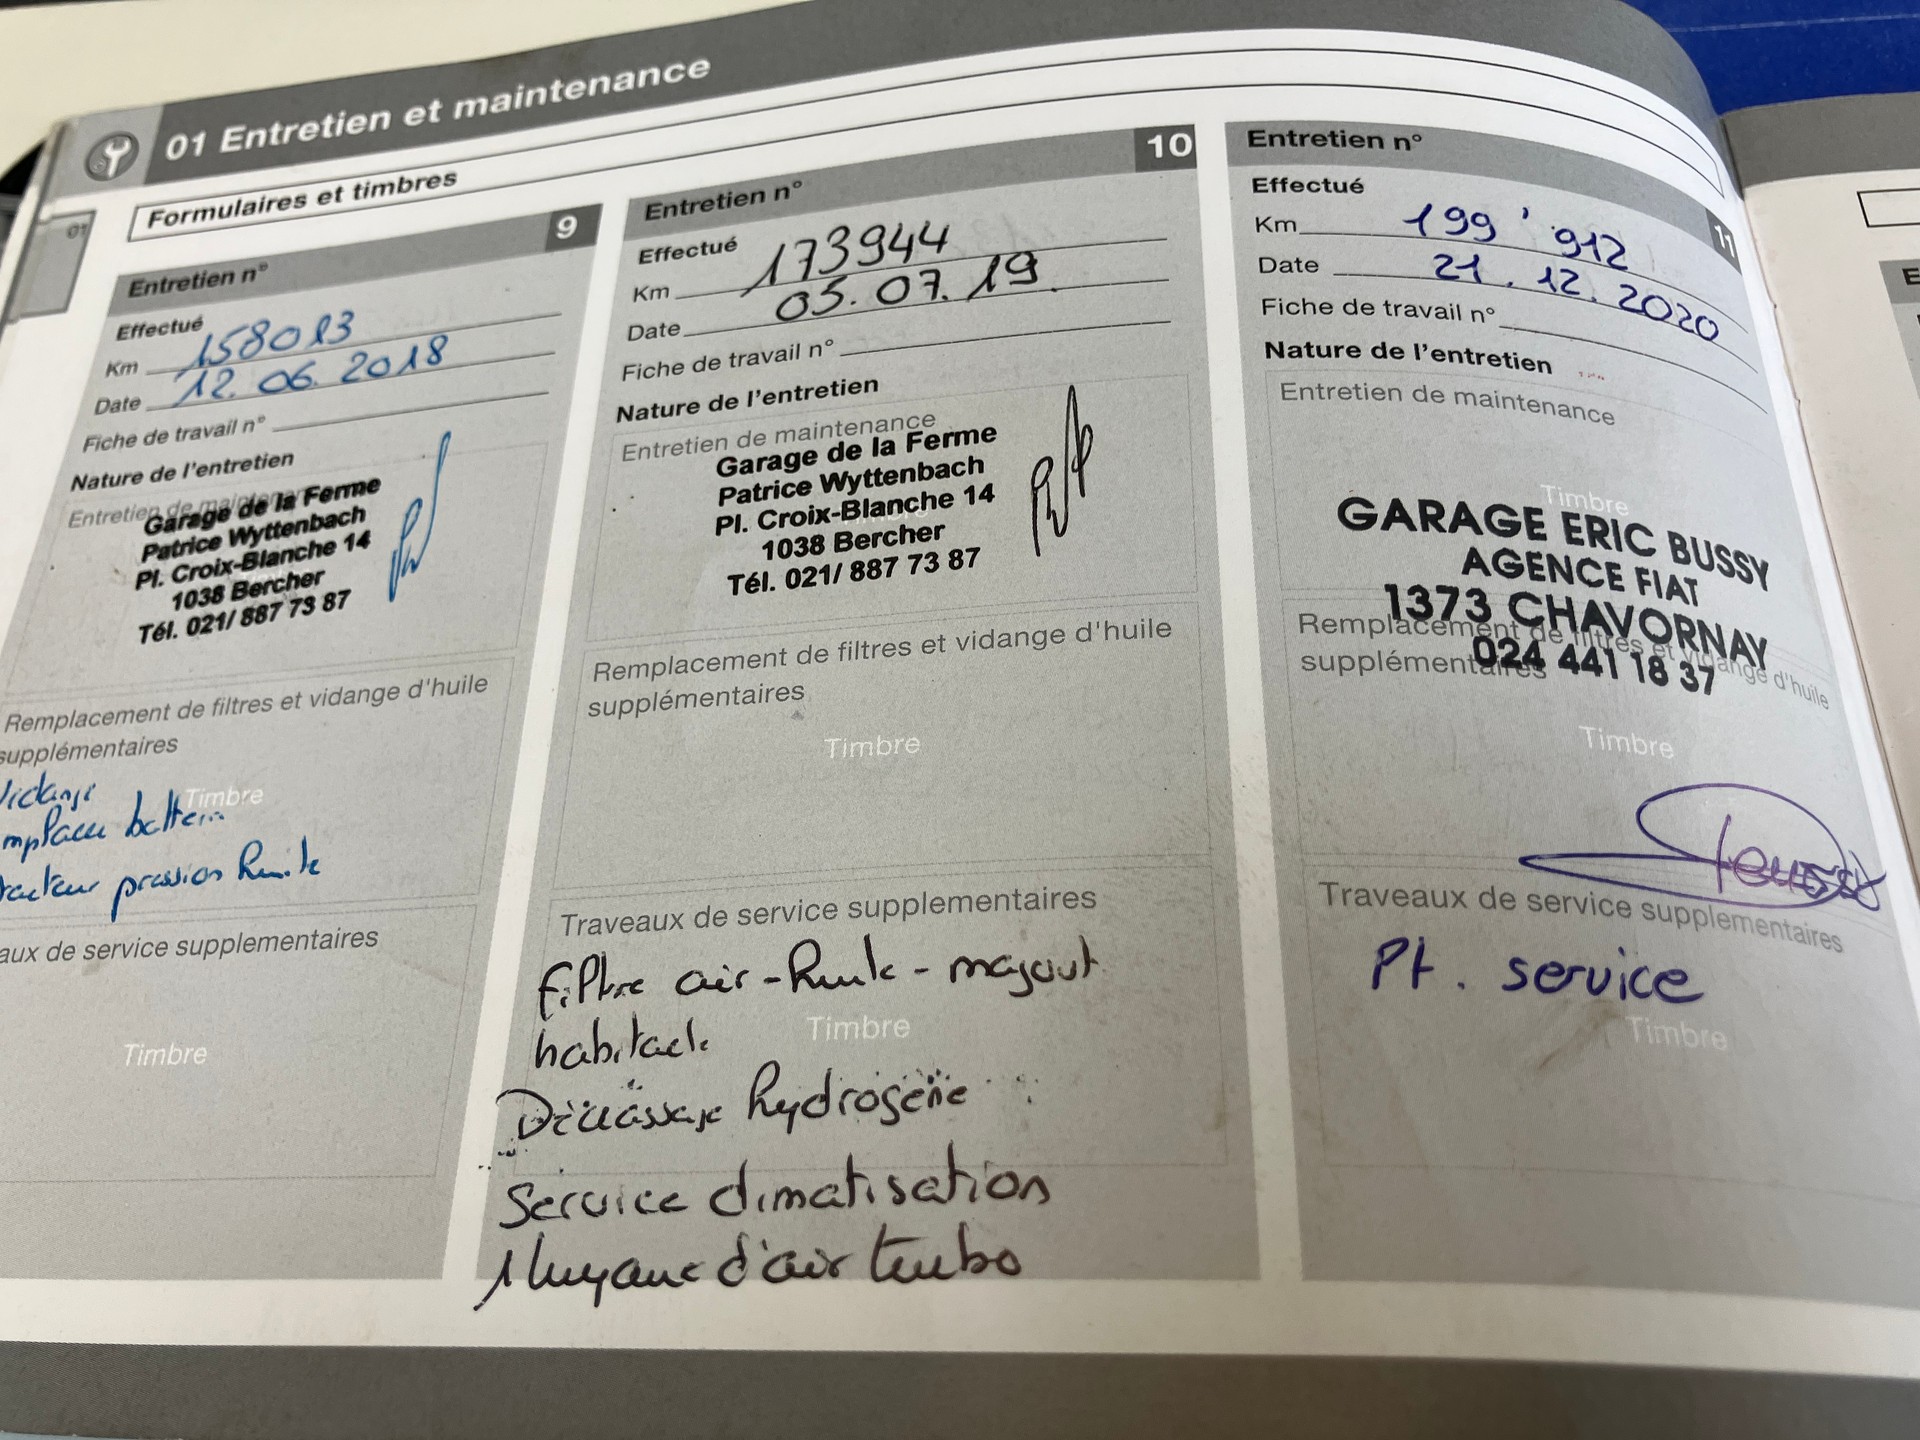 01 Entretien et maintenance
01
Formulaires et timbres
Entretien n° 9
Effectué
Km 158013
Date 12.06.2018
Fiche de travail n°
Nature de l'entretien
Entretien de maintenance
Garage de la Ferme
Patrice Wyttenbach
Pl. Croix-Blanche 14
1038 Bercher
Tél. 021/ 887 73 87
Remplacement de filtres et vidange d'huile
supplémentaires
Timbre
pression huile
aux de service supplementaires
Timbre
Entretien n° 10
Effectué
Km 173944
Date 05.07.19.
Fiche de travail n°
Nature de l'entretien
Entretien de maintenance
Garage de la Ferme
Patrice Wyttenbach
Pl. Croix-Blanche 14
1038 Bercher
Tél. 021/ 887 73 87
Remplacement de filtres et vidange d'huile
supplémentaires
Timbre
Traveaux de service supplementaires
filtre air - huile - mazout
habitacle
Timbre
Décrassage hydrogène
Service climatisation
1 tuyaux d'air turbo
Entretien n° 11
Effectué
Km 199'912
Date 21.12.2020
Fiche de travail n°
Nature de l'entretien
Entretien de maintenance
Timbre
GARAGE ERIC BUSSY
AGENCE FIAT
1373 CHAVORNAY
024 441 18 37
Remplacement de filtres et vidange d'huile
supplémentaires
Timbre
Traveaux de service supplementaires
Pt. service
Timbre